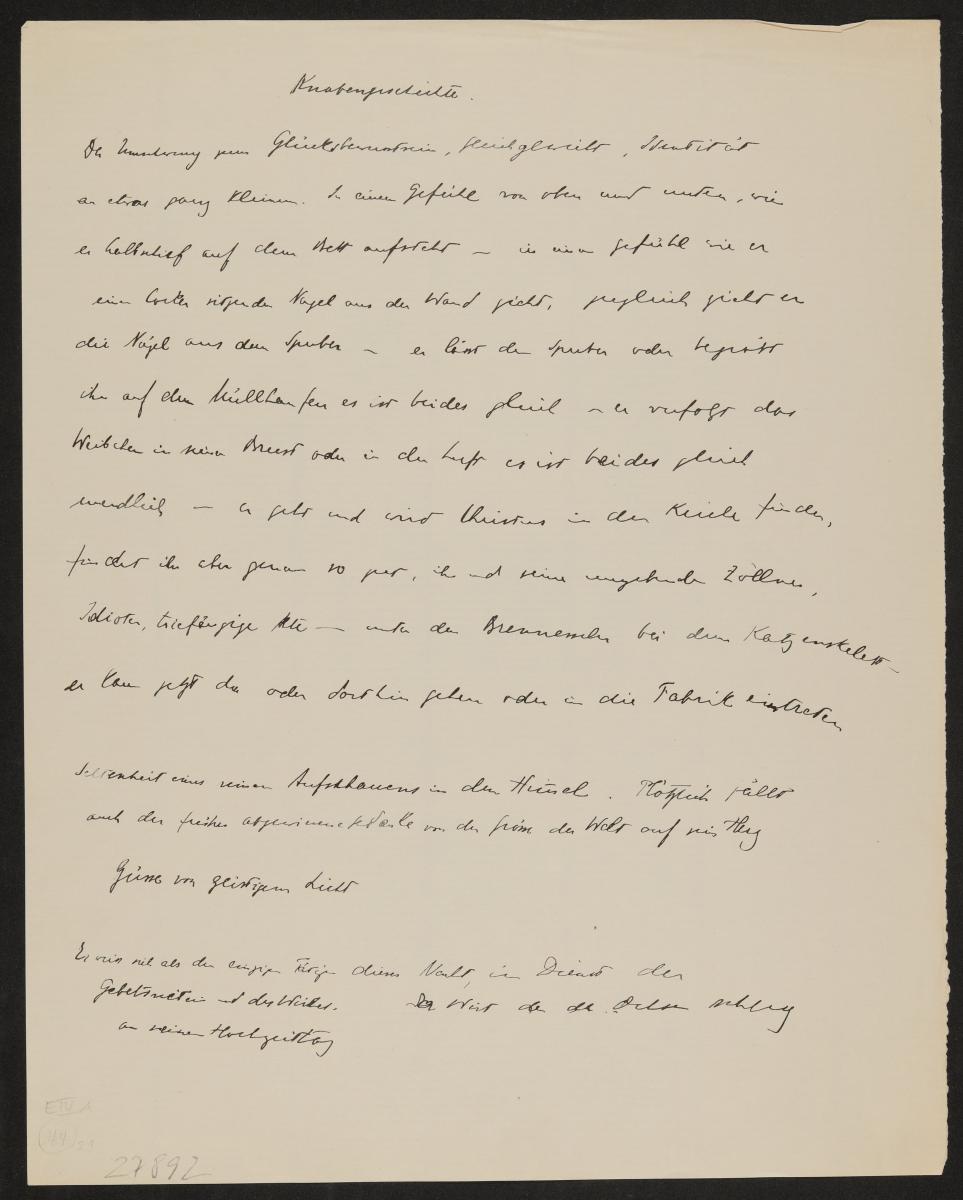 Knabengeschichte.
Die Umkehrung zum Glücksbewusstsein, Gleichgewicht, Identität
an etwas ganz Kleinem. In einem Gefühl von oben und unten, wie
er halbschief auf dem Bett aufsteht – in einem Gefühl wie er
einen locker sitzenden Nagel aus der Wand zieht, zugleich zieht er
die Nägel aus dem Sperber – er lässt den Sperber oder begräbt
ihn auf dem Müllhaufen es ist beides gleich – er verfolgt das
Weibchen in seiner Brust oder in der Luft es ist beides gleich
unendlich – er geht und wird Christus in der Kirche finden,
findet ihn aber genau so gut, ihn und seine umgebenden Zöllner,
Idioten, triefäugige Alte – unter den Brennesseln bei dem Katzenskelett –
er kann jetzt da oder dorthin gehen oder in die Fabrik eintreten
Seltenheit eines reinen Aufschauens in den Himmel. Plötzlich fällt
auch der früher abgewiesene Gedanke von der Grösse der Welt auf sein Herz
Güsse von geistigem Licht
Er weiss sich als den einzigen dieser Nacht, im Dienst der
und des Weibes. Der Wirt der den Ochsen schlug
an seinem Hochzeittag
27892